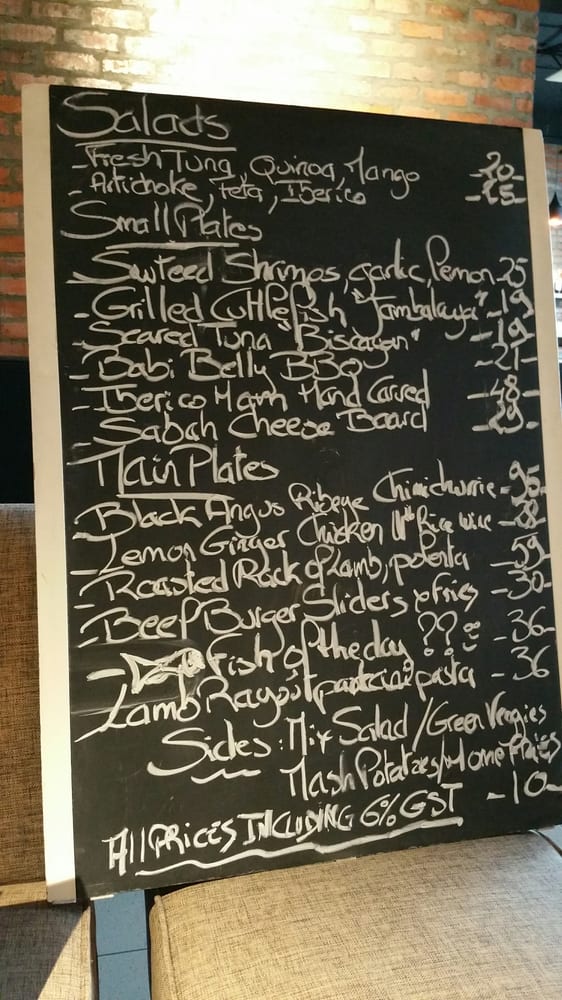 Salads
- Fresh Tuna, Quinoa, Mango -20-
- Artichoke, feta, Iberico -25-
Small Plates
- Sauteed Shrimps, garlic, lemon 25
- Grilled Cuttlefish "Jambalaya" -19
- Seared Tuna "Biscayan" -19-
- Babi Belly BBQ -21-
- Iberico Ham Hand Carved -48-
- Sabah Cheese Board -29-
Main Plates
- Black Angus Ribeye Chimichurrie -95-
- Lemon Ginger Chicken Rice wine
- Roasted Rack of Lamb, polenta -59-
- Beef Burger Sliders & fries -30-
- Fish of the day ?? -36-
Lamb Ragout, pasta - 36
Sides: Mix Salad / Green Veggies
Mash Potatoes / Home Fries
-10-
All PRICES INCLUDING 6% GST